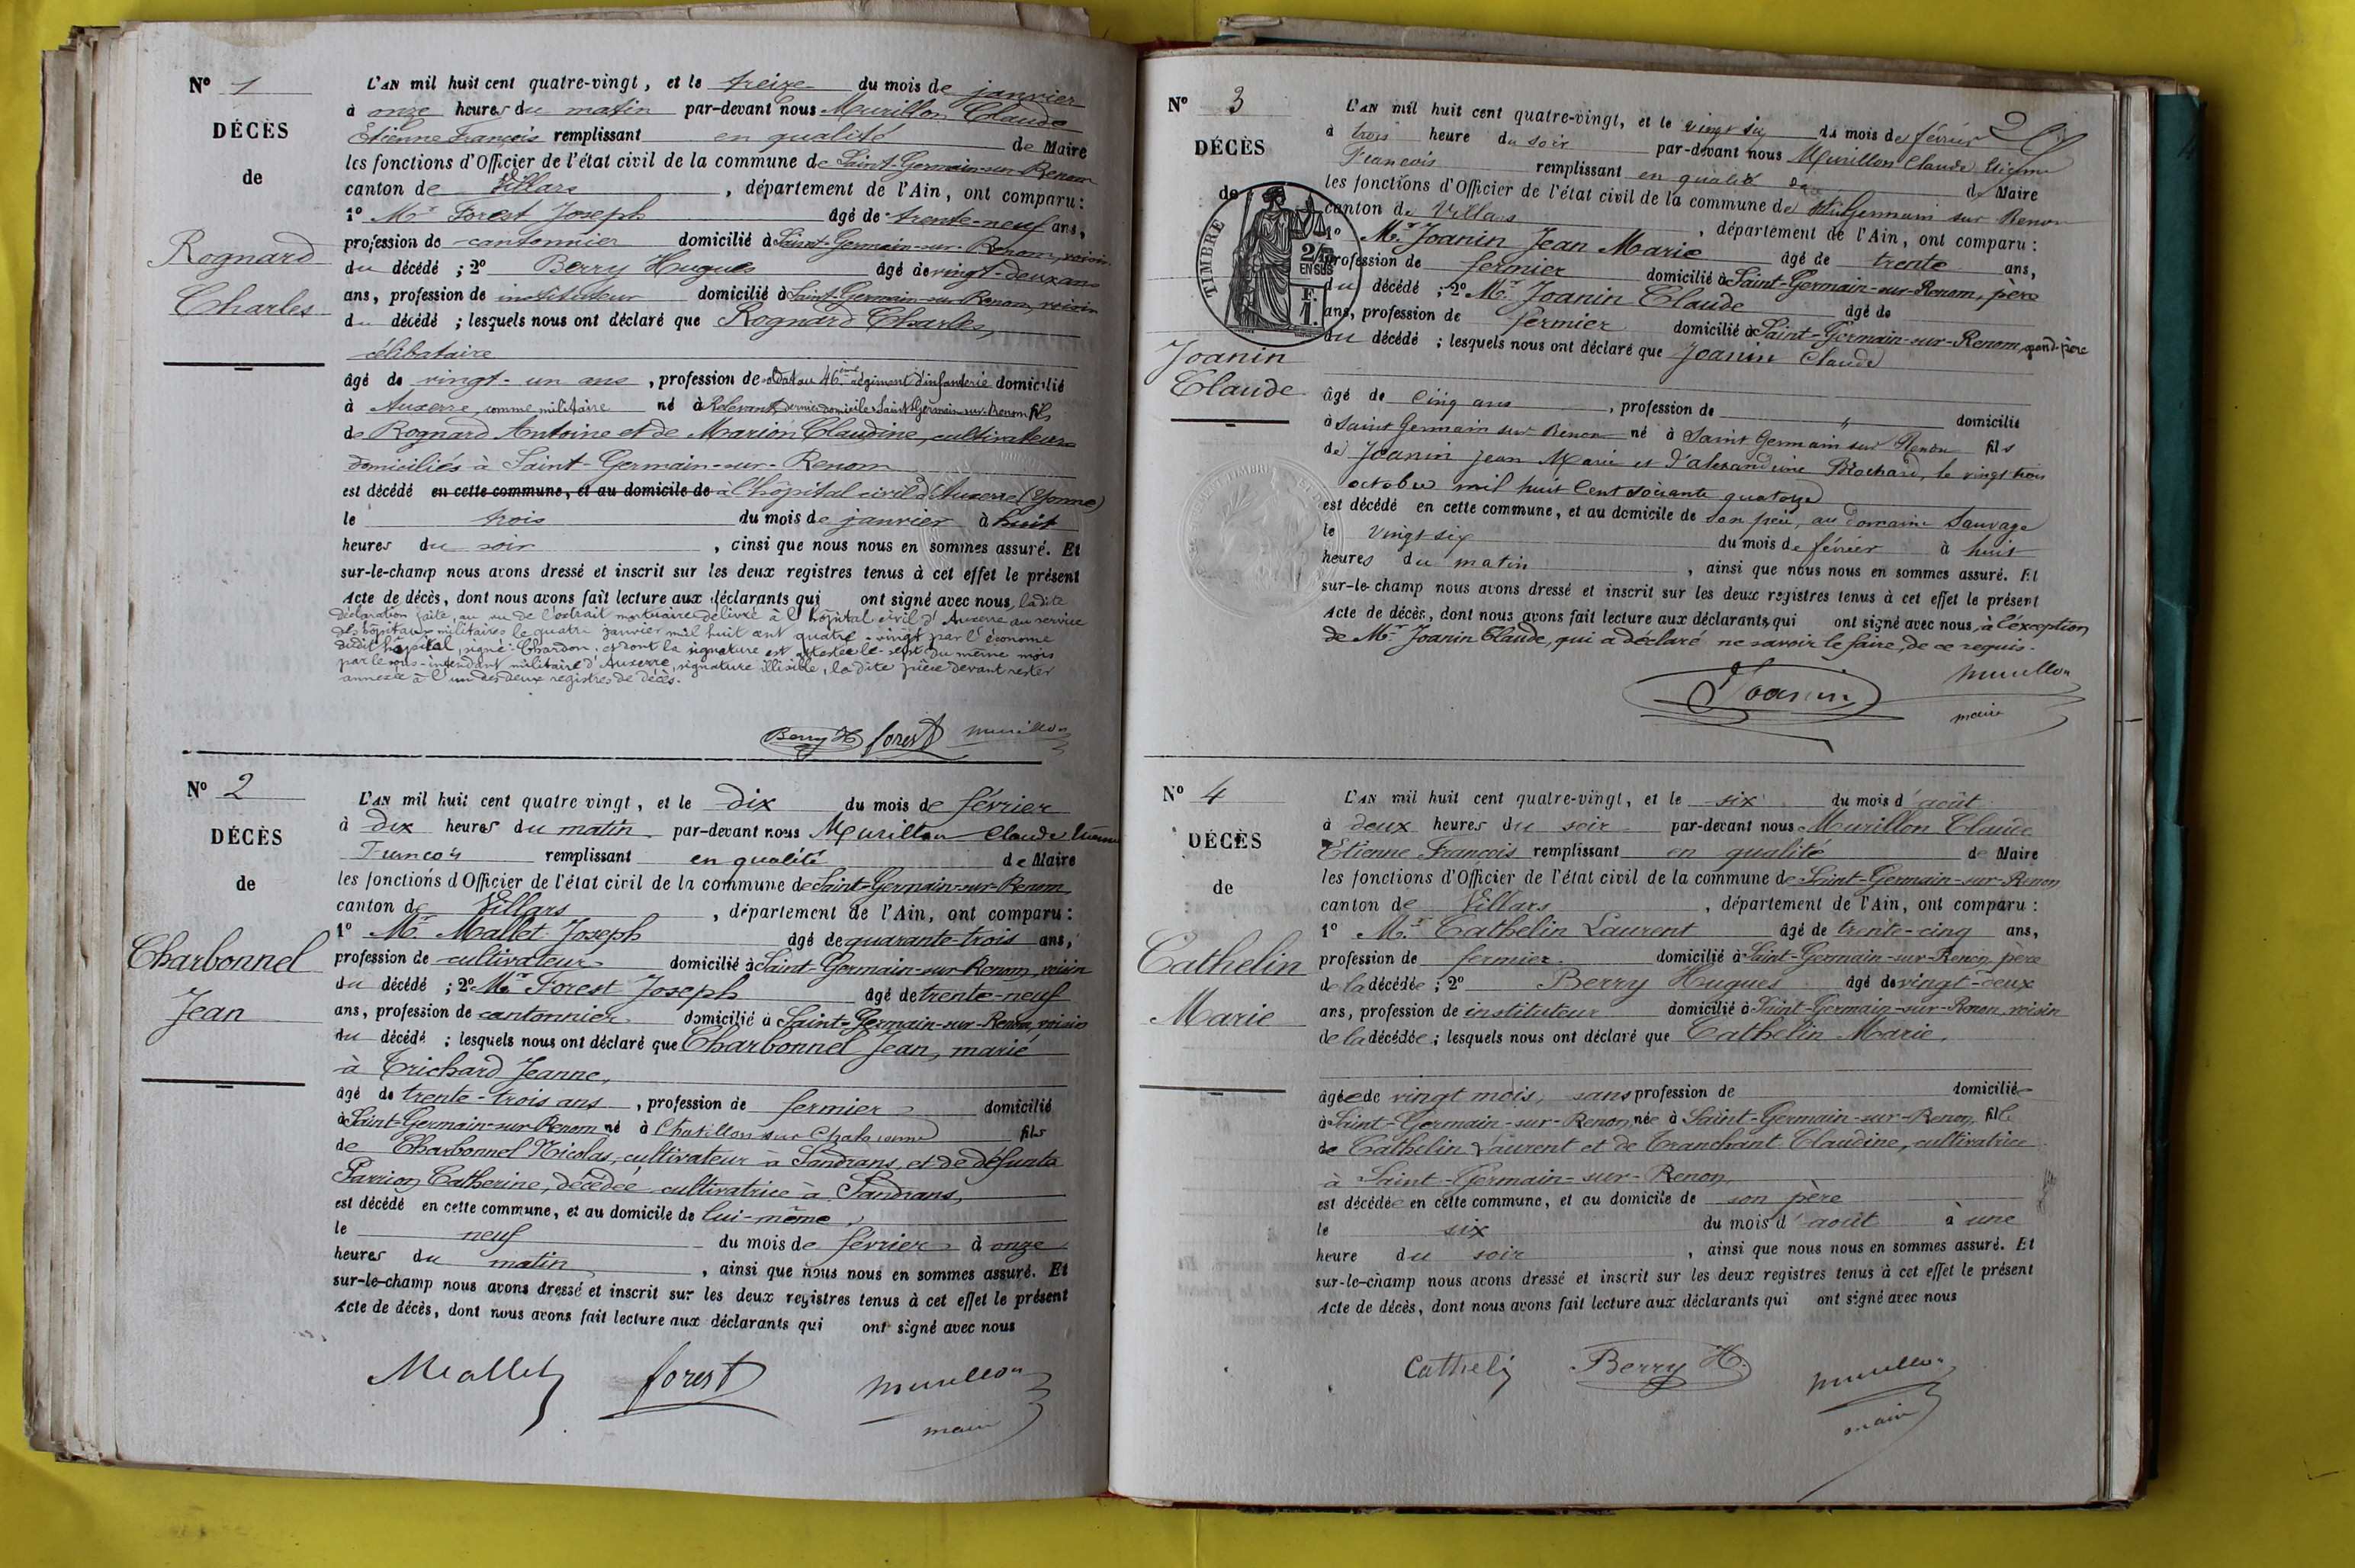 N° 1
DÉCÈS
de
Rognard
Charles
L'AN mil huit cent quatre-vingt, et le treize du mois de janvier
à onze heures du matin par-devant nous Murillon Claude
Etienne François remplissant en qualité de Maire
les fonctions d'Officier de l'état civil de la commune de Saint-Germain-sur-Renom
canton de Villars, département de l'Ain, ont comparu :
1° Mr Forest Joseph âgé de trente-neuf ans,
profession de cantonnier domicilié à Saint-Germain-sur-Renom, voisin
du décédé ; 2° Berry Hugues âgé de vingt-deux ans
ans, profession de instituteur domicilié à Saint-Germain-sur-Renom, voisin
du décédé ; lesquels nous ont déclaré que Rognard Charles,
célibataire
âgé de vingt-un ans, profession de soldat au 46ème régiment d'infanterie domicilié
à Auxerre, comme militaire né à Relevant, dernier domicile Saint-Germain-sur-Renom fils
de Rognard Antoine et de Marion Claudine, cultivateurs
domiciliés à Saint-Germain-sur-Renom
est décédé en cette commune, et au domicile de à l'hôpital civil d'Auxerre (Yonne)
le trois du mois de janvier à huit
heures du soir, ainsi que nous nous en sommes assuré. Et
sur-le-champ nous avons dressé et inscrit sur les deux registres tenus à cet effet le présent
Acte de décès, dont nous avons fait lecture aux déclarants qui ont signé avec nous, la dite
déclaration faite, au vu de l'extrait mortuaire délivré à l'hôpital civil d'Auxerre au service
des hôpitaux militaires le quatre janvier mil huit cent quatre-vingt par l'économe
dudit hôpital, signé : Chardon, et dont la signature est attestée le sept du même mois
par le sous-intendant militaire d'Auxerre, signature illisible, la dite pièce devant rester
annexée à l'un des deux registres de décès.
Berry H forest murillon
N° 2
DÉCÈS
de
Charbonnel
Jean
L'AN mil huit cent quatre vingt, et le dix du mois de février
à dix heures du matin par-devant nous Murillon Claude Etienne
François remplissant en qualité de Maire
les fonctions d'Officier de l'état civil de la commune de Saint-Germain-sur-Renom
canton de Villars, département de l'Ain, ont comparu :
1° Mr Mallet Joseph âgé de quarante-trois ans,
profession de cultivateur domicilié à Saint-Germain-sur-Renom, voisin
du décédé ; 2° Mr Forest Joseph âgé de trente-neuf
ans, profession de cantonnier domicilié à Saint-Germain-sur-Renom, voisin
du décédé ; lesquels nous ont déclaré que Charbonnel Jean, marié
à Trichard Jeanne,
âgé de trente-trois ans, profession de fermier domicilié
à Saint-Germain-sur-Renom né à Chatillon sur Chalaronne fils
de Charbonnel Nicolas, cultivateur à Sandrans, et de défunte
Parrion Catherine, décédée cultivatrice à Sandrans,
est décédé en cette commune, et au domicile de lui-même,
le neuf du mois de février à onze
heures du matin, ainsi que nous nous en sommes assuré. Et
sur-le-champ nous avons dressé et inscrit sur les deux registres tenus à cet effet le présent
Acte de décès, dont nous avons fait lecture aux déclarants qui ont signé avec nous
Mallet forest murillon
maire
N° 3
DÉCÈS
de
TIMBRE
2/10
EN SUS
F.
1.
Joanin
Claude
2
L'AN mil huit cent quatre-vingt, et le vingt six du mois de février
à trois heure du soir par-devant nous Murillon Claude Etienne
François remplissant en qualité de Maire
les fonctions d'Officier de l'état civil de la commune de St Germain sur Renon
canton de Villars, département de l'Ain, ont comparu :
1° Mr Joanin Jean Marie âgé de trente ans,
profession de fermier domicilié à Saint-Germain-sur-Renom, père
du décédé ; 2° Mr Joanin Claude âgé de
ans, profession de fermier domicilié à Saint-Germain-sur-Renom, grand-père
du décédé ; lesquels nous ont déclaré que Joanin Claude
âgé de cinq ans, profession de " domicilié
à Saint Germain sur Renon né à Saint Germain sur Renon fils
de Joanin Jean Marie et d'alexandrine Brochard, le vingt trois
octobre mil huit cent soixante quatorze
est décédé en cette commune, et au domicile de son père, au domaine Sauvage
le vingt six du mois de février à huit
heures du matin, ainsi que nous nous en sommes assuré. Et
sur-le-champ nous avons dressé et inscrit sur les deux registres tenus à cet effet le présent
Acte de décès, dont nous avons fait lecture aux déclarants qui ont signé avec nous, à l'exception
de Mr Joanin Claude, qui a déclaré ne savoir le faire, de ce requis.
Joanin murillon
maire
N° 4
DÉCÈS
de
Cathelin
Marie
L'AN mil huit cent quatre-vingt, et le six du mois d'août
à deux heures du soir par-devant nous Murillon Claude
Etienne François remplissant en qualité de Maire
les fonctions d'Officier de l'état civil de la commune de Saint-Germain-sur-Renon
canton de Villars, département de l'Ain, ont comparu :
1° Mr Cathelin Laurent âgé de trente-cinq ans,
profession de fermier domicilié à Saint-Germain-sur-Renon, père
de la décédée ; 2° Berry Hugues âgé de vingt-deux
ans, profession de instituteur domicilié à Saint-Germain-sur-Renon, voisin
de la décédée ; lesquels nous ont déclaré que Cathelin Marie,
âgée de vingt mois, sans profession de domiciliée
à Saint-Germain-sur-Renon, née à Saint-Germain-sur-Renon, fille
de Cathelin Laurent et de Tranchant Claudine, cultivatrice
à Saint-Germain-sur-Renon,
est décédée en cette commune, et au domicile de son père
le six du mois d'août à une
heure du soir, ainsi que nous nous en sommes assuré. Et
sur-le-champ nous avons dressé et inscrit sur les deux registres tenus à cet effet le présent
Acte de décès, dont nous avons fait lecture aux déclarants qui ont signé avec nous
Catheli Berry H. murillon
maire